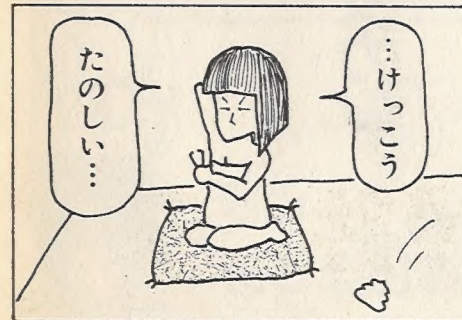 …けっこう
たのしい…